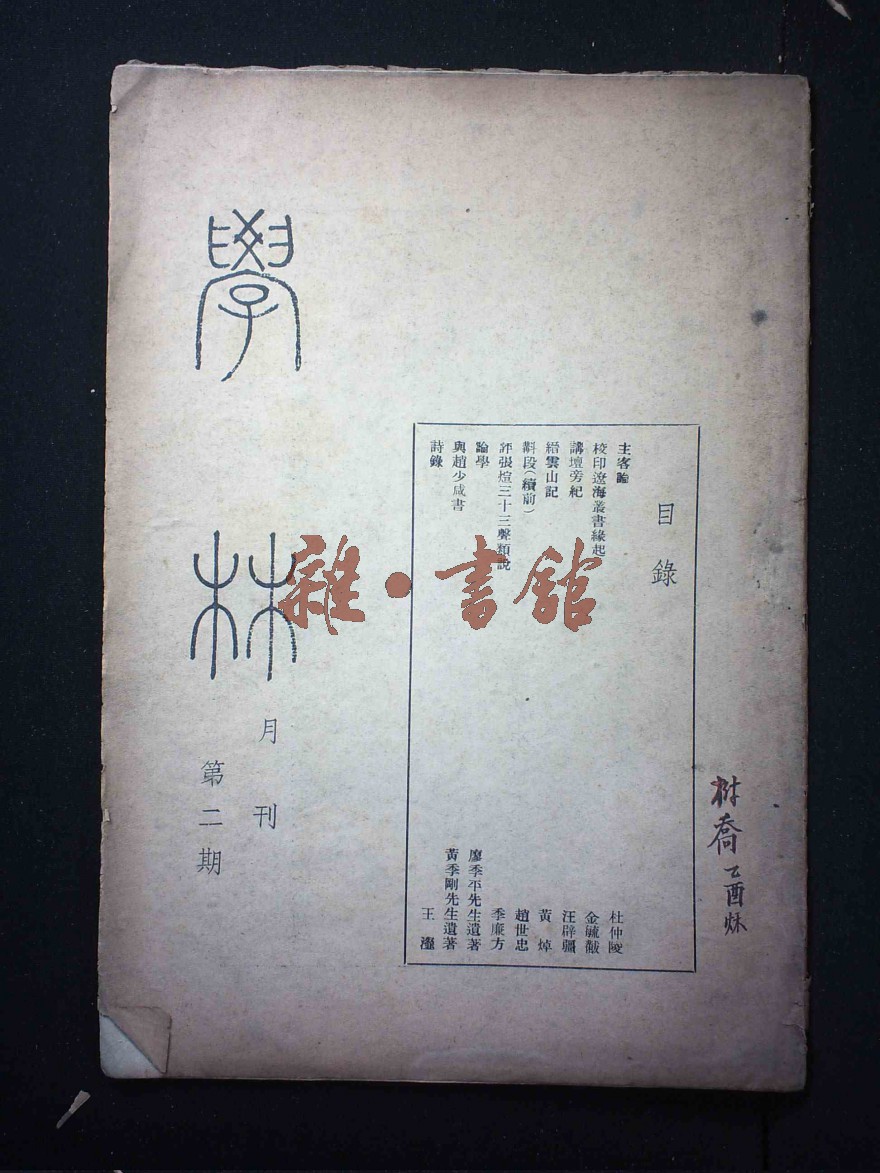 目錄
主客論 杜仲陵
校印遼海叢書緣起 金毓黻
講壇旁紀 汪辟疆
縉雲山記 黃焯
斠段(續前) 趙世忠
評張煊三十三聲類說 季廉方
論學 廖季平先生遺著
與趙少咸書 黃季剛先生遺著
詩錄 王瀣
學林
月刊
第二期
樹喬 乙酉秌
雜·書館